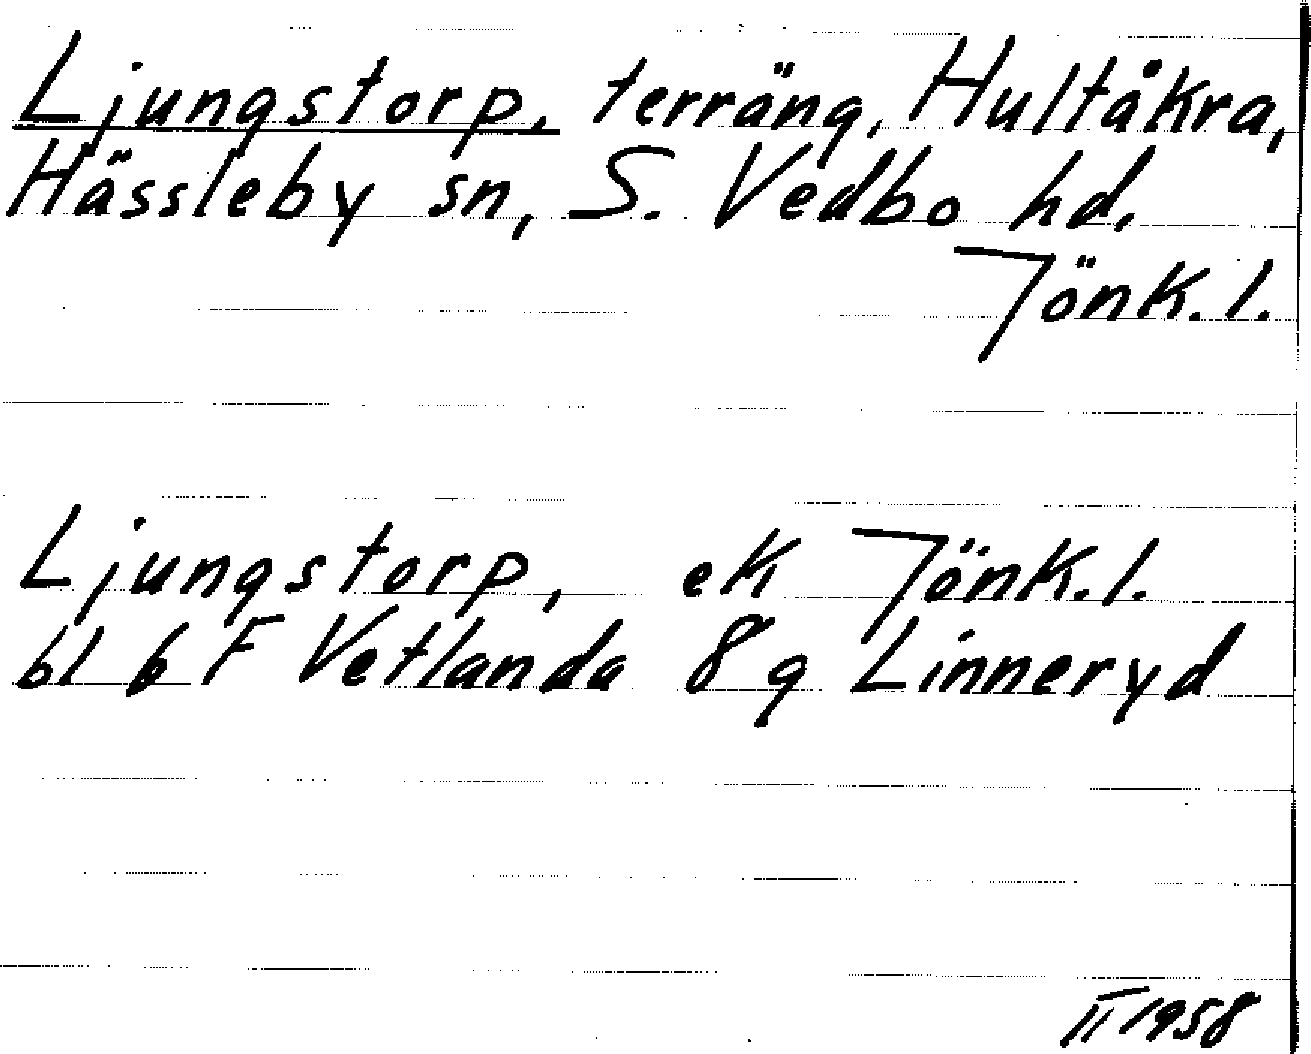 Ljungstorp, terräng, Hultåkra,
Hässleby sn, S. Vedbo hd.
Jönk. l.
Ljungstorp, ek Jönk. l.
bl b F Vetlanda 8 g Linneryd
II 1958